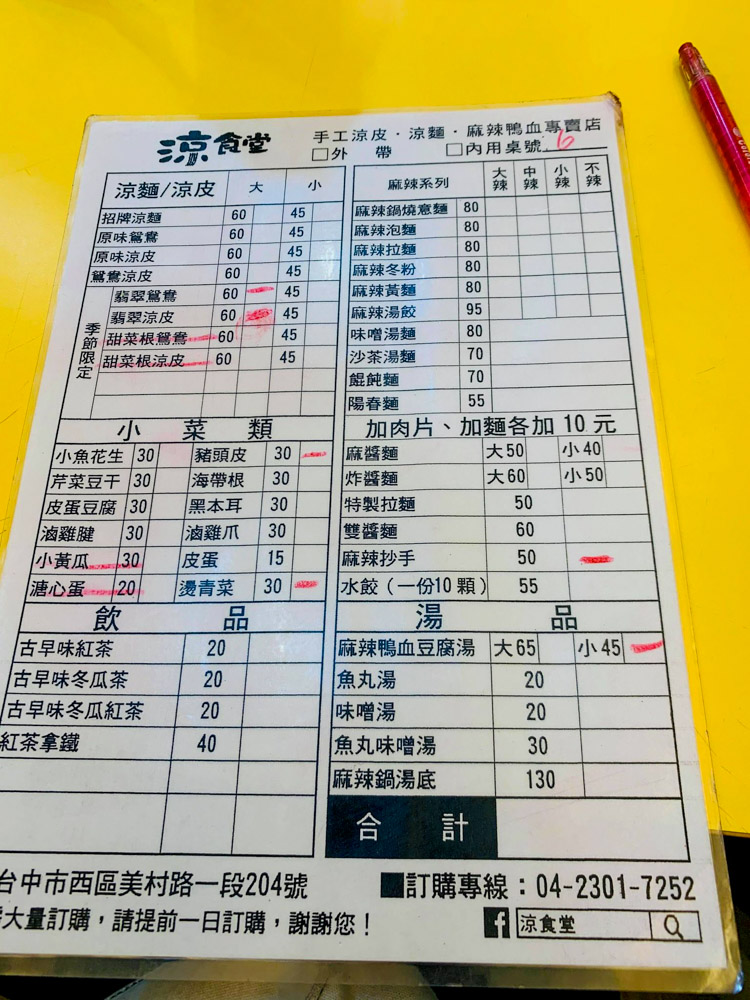 涼食堂
手工涼皮．涼麵．麻辣鴨血專賣店
□外 帶 □內用桌號 6
涼麵/涼皮 大 小
招牌涼麵 60 45
原味鴛鴦 60 45
原味涼皮 60 45
鴛鴦涼皮 60 45
季節限定
翡翠鴛鴦 60 45
翡翠涼皮 60 45
甜菜根鴛鴦 60 45
甜菜根涼皮 60 45
小菜類
小魚花生 30 豬頭皮 30
芹菜豆干 30 海帶根 30
皮蛋豆腐 30 黑本耳 30
滷雞腱 30 滷雞爪 30
小黃瓜 30 皮蛋 15
溏心蛋 20 燙青菜 30
飲品
古早味紅茶 20
古早味冬瓜茶 20
古早味冬瓜紅茶 20
紅茶拿鐵 40
麻辣系列 大辣 中辣 小辣 不辣
麻辣鍋燒意麵 80
麻辣泡麵 80
麻辣拉麵 80
麻辣冬粉 80
麻辣黃麵 80
麻辣湯餃 95
味噌湯麵 80
沙茶湯麵 70
餛飩麵 70
陽春麵 55
加肉片、加麵各加 10 元
麻醬麵 大50 小40
炸醬麵 大60 小50
特製拉麵 50
雙醬麵 60
麻辣抄手 50
水餃（一份10 顆） 55
湯品
麻辣鴨血豆腐湯 大65 小45
魚丸湯 20
味噌湯 20
魚丸味噌湯 30
麻辣鍋湯底 130
合計
台中市西區美村路一段204號 ■訂購專線：04-2301-7252
大量訂購，請提前一日訂購，謝謝您！ f 涼食堂